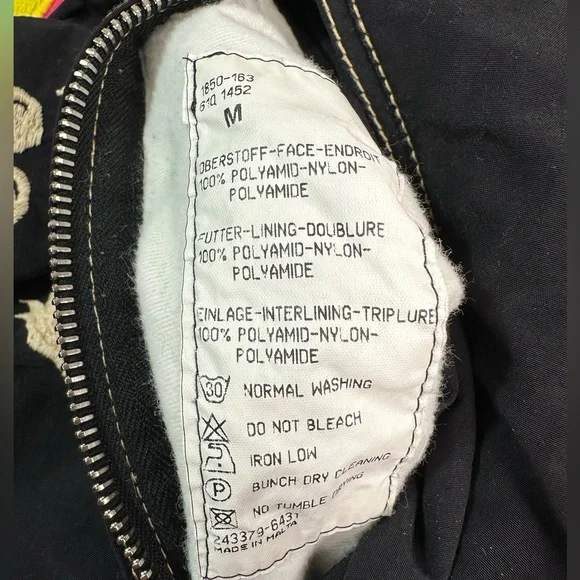 1850-163
61Q 1452
M
OBERSTOFF-FACE-ENDROIT
100% POLYAMID-NYLON-
POLYAMIDE
FUTTER-LINING-DOUBLURE
100% POLYAMID-NYLON-
POLYAMIDE
EINLAGE-INTERLINING-TRIPLURE
100% POLYAMID-NYLON-
POLYAMIDE
30 NORMAL WASHING
DO NOT BLEACH
IRON LOW
P BUNCH DRY CLEANING
NO TUMBLE DRYING
243379-6431
MADE IN MALTA